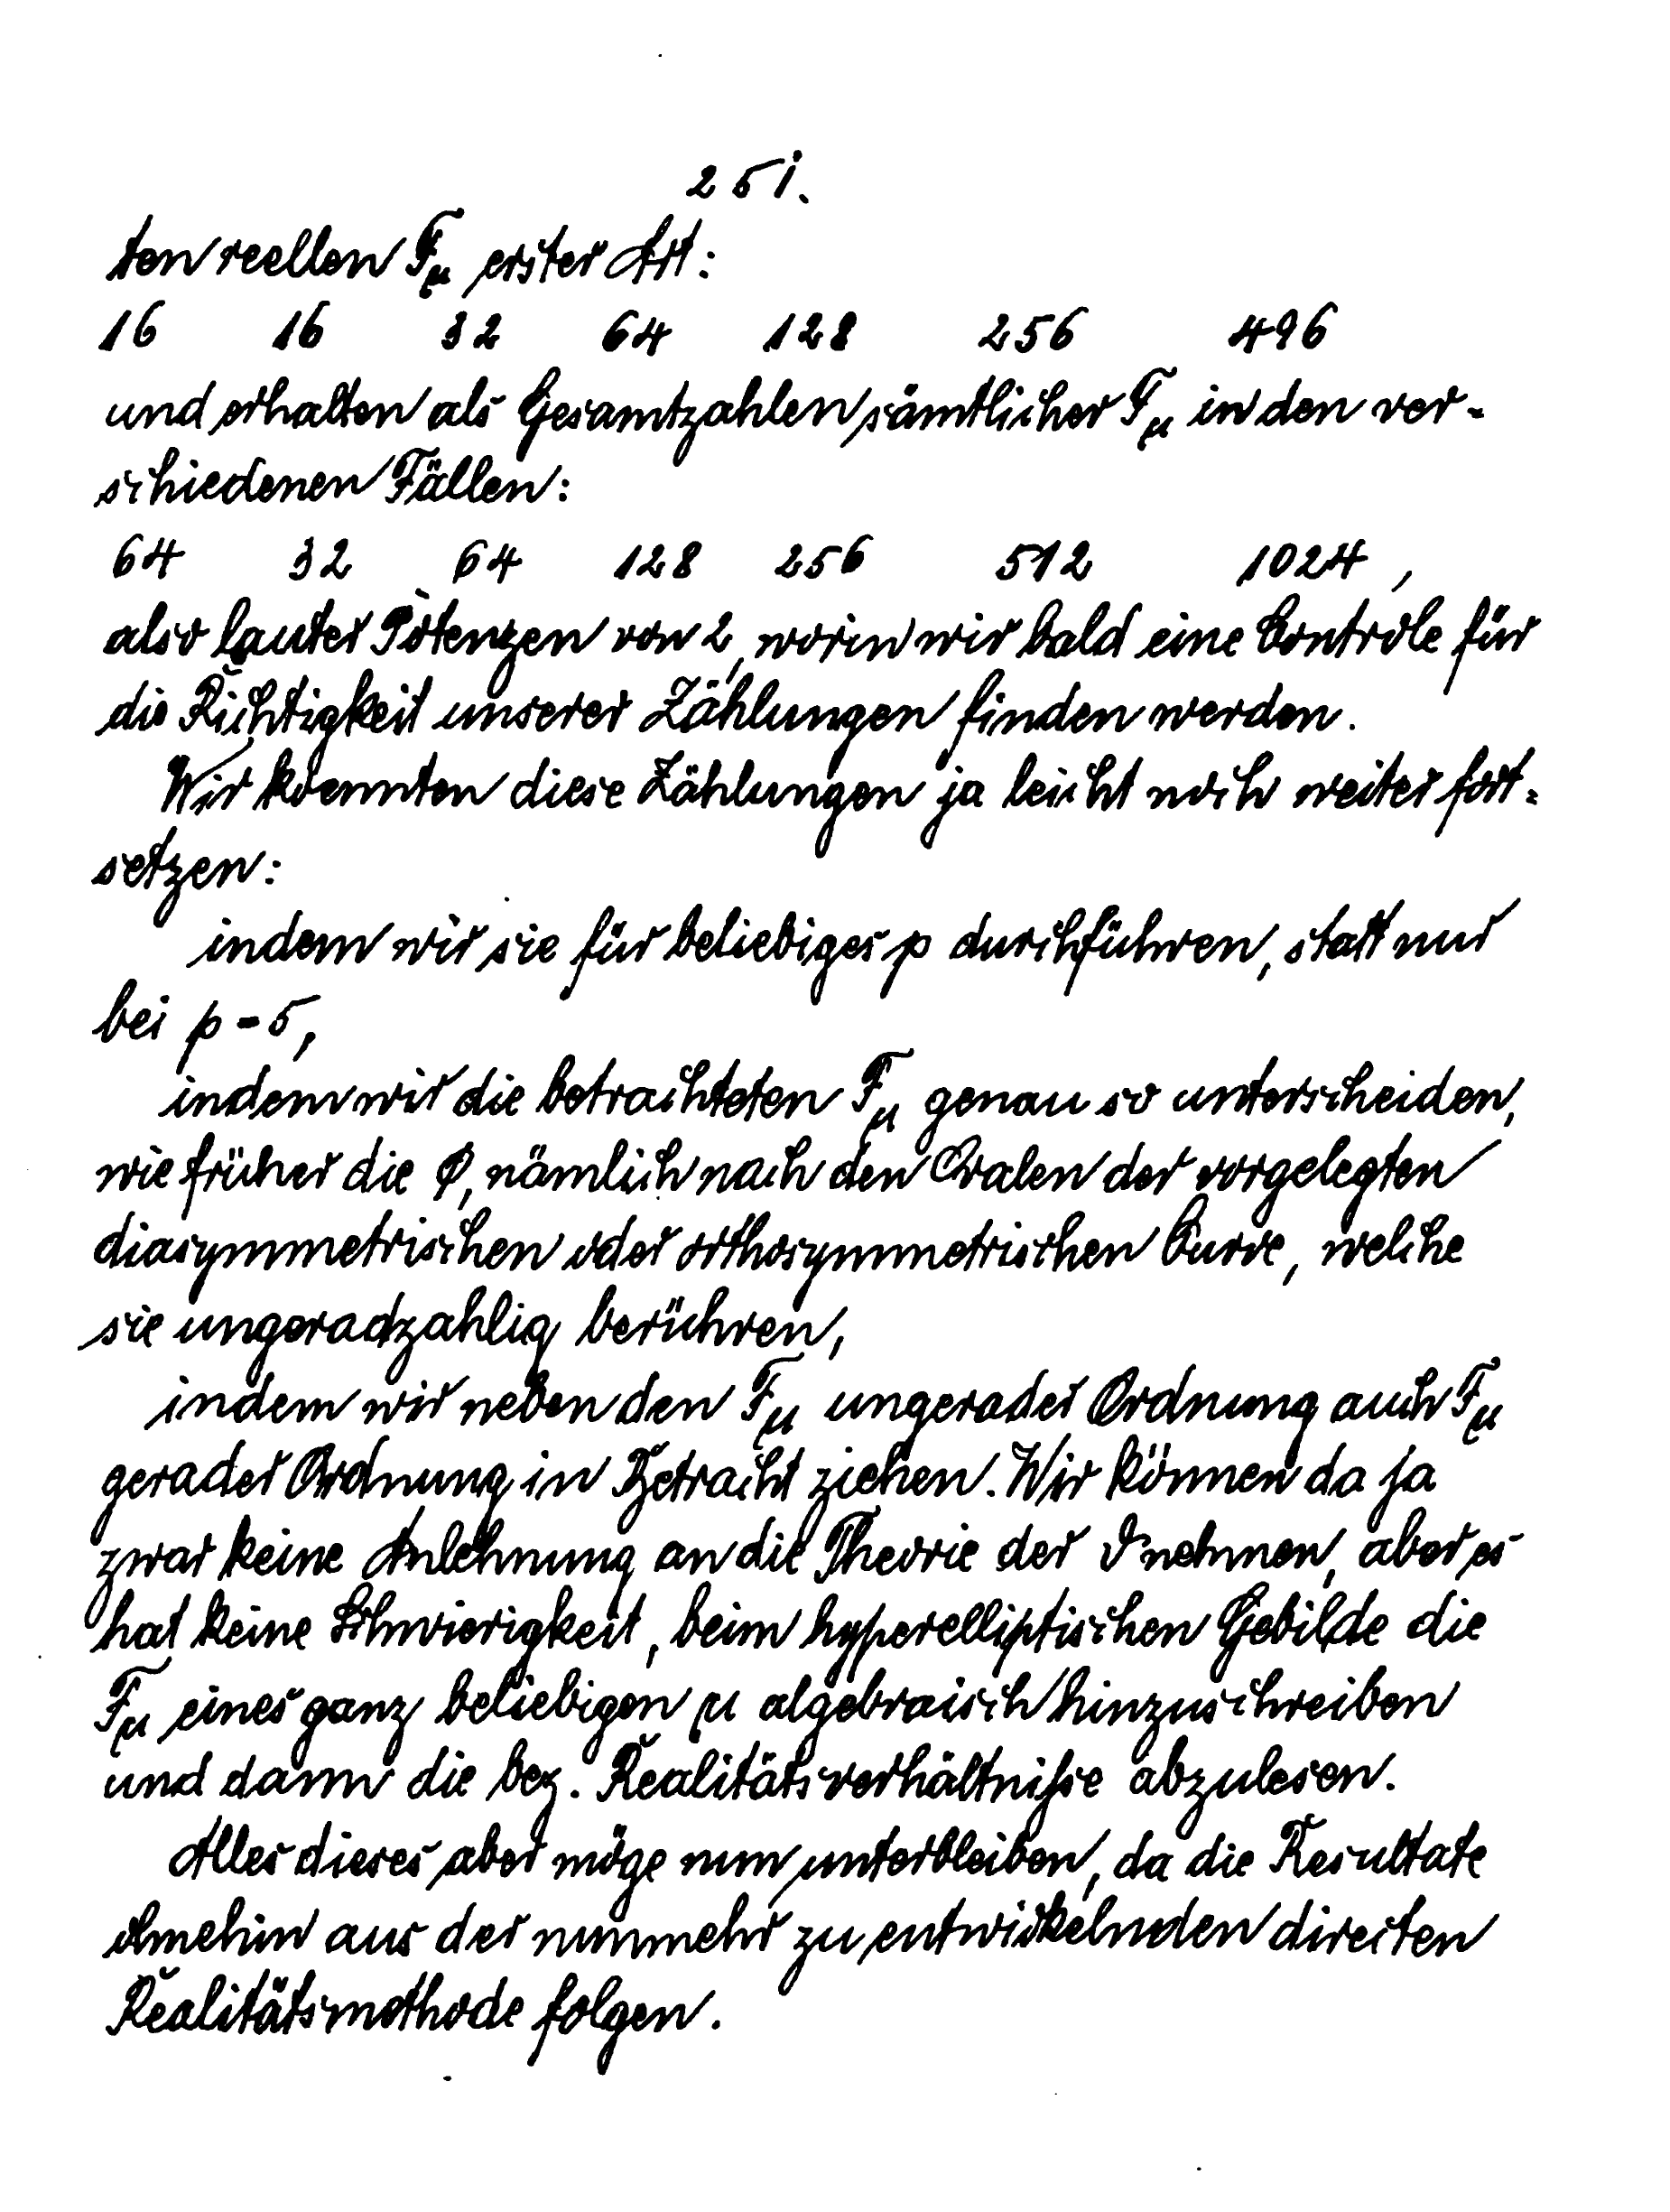 251.
ten reellen F_μ erster Art:
16 16 32 64 128 256 496
und erhalten als Gesamtzahlen sämtlicher F_μ in den ver-
schiedenen Fällen:
64 32 64 128 256 512 1024,
also lauter Potenzen von 2, worin wir bald eine Controle für
die Richtigkeit unserer Zählungen finden werden.
Wir koennten diese Zählungen ja leicht noch weiter fort-
setzen:
indem wir sie für beliebiges p durchführen, statt nur
bei p = 5,
indem wir die betrachteten F_μ genau so unterscheiden,
wie früher die Φ, nämlich nach den Ovalen der vorgelegten
diasymmetrischen oder orthosymmetrischen Curve, welche
sie ungeradzahlig berühren,
indem wir neben den F_μ ungerader Ordnung auch F_μ
gerader Ordnung in Betracht ziehen. Wir können da ja
zwar keine Anlehnung an die Theorie der ϑ nehmen, aber es
hat keine Schwierigkeit, beim hyperelliptischen Gebilde die
F_μ eines ganz beliebigen μ algebraisch hinzuschreiben
und dann die bez. Realitätsverhältnisse abzulesen.
Alles dieses aber möge nun unterbleiben, da die Resultate
ohnehin aus der nunmehr zu entwickelnden directen
Realitätsmethode folgen.